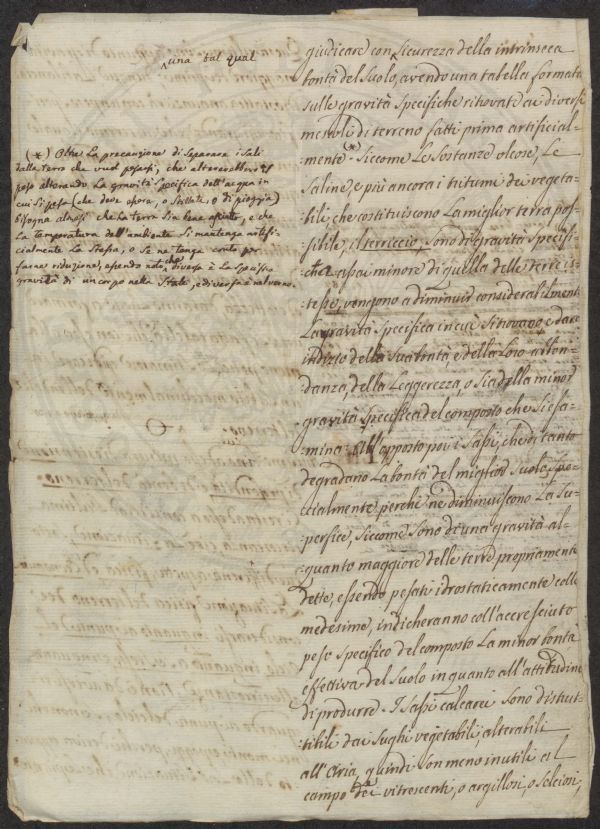 ^una tal qual
(*) Oltre la precauzione di separare i sali
dalla terra che vuol pesarsi, che altererebbero il
peso alterando la gravità specifica dell'acqua in
cui si pesa (che deve essere, o stillata, o di pioggia)
bisogna almeno che la terra sia bene asciutta, e che
la temperatura dell'ambiente si mantenga artifi-
cialmente la stessa, o se ne tenga conto per
farne riduzione, essendo noto che diversa è la specifica
gravità di un corpo nella State, e diversa nel verno.
giudicare con^sicurezza della intrinseca
bontà del suolo, avendo una tabella formata
sulle gravità specifiche ritrovate ai diversi
mescoli di terreno fatti prima artificial-
mente(*). Siccome le sostanze oleose, le
saline, e più ancora i tritumi dei vegeta-
bili che costituiscono la miglior terra pos-
sibile, il terriccio, sono di gravità specifi-
che assai minore di quella delle terre is-
tesse, vengono a diminuir considerabilmente
la gravità specifica in cui si trovano, e dare
indizio della sua bontà, e della loro abbon-
danza, della leggerezza, o sia della minor
gravità specifica del composto che si esa-
mina: all'opposto poi i sassi, che di tanto
degradano la bontà del miglior suolo, spe-
cialmente perchè ne diminuiscono la su-
perficie, siccome sono di una gravità al-
quanto maggiore delle terre propriamente
dette, essendo pesati idrostaticamente colle
medesime, indicheranno coll'accresciuto
peso specifico del composto la minor bontà
effettiva del suolo in quanto all'attitudine
di produrre. I sassi calcarei sono distrut-
tibili dai sughi vegetabili, alterabili
all'aria, quindi son meno inutili al
campo dei vitrescenti, o argillosi, o selciosi,